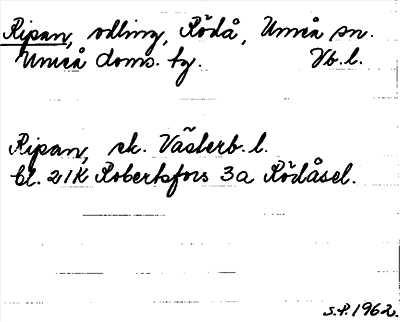 Ripan, odling, Rödå, Umeå sn.
Umeå doms. tg. Vb. l.
Ripan, ek. Västerb. l.
bl. 21K Robertsfors 3a Rödåsel.
S.P. 1962.